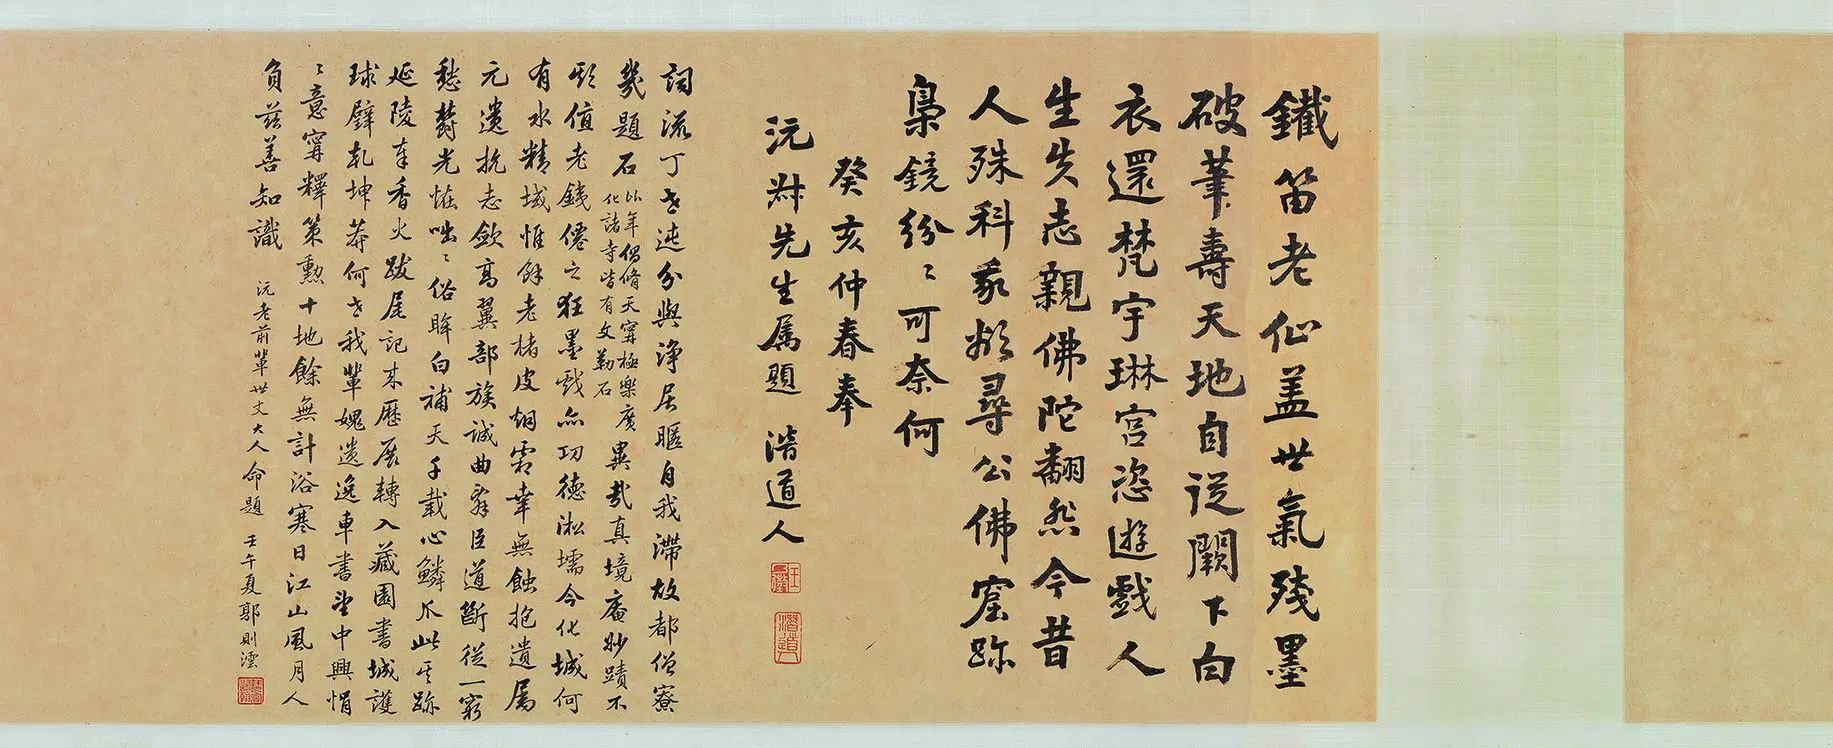 鐵笛老仙盖世氣殘墨
破筆壽天地自從闕下白
衣還梵宇琳宮恣遊戲人
生失志親佛陀翻然今昔
人殊科我欲尋公佛窟跡
梟鏡紛〻可奈何
癸亥仲春奉
沅叔先生属題 潛道人
詞流丁世逃分與淨居暱自我滯故都僧寮
幾題石
以年偶脩天寧極樂廣
化諸寺皆有文勒石
異哉真境庵妙蹟不
値老鐵僊之狂墨戲亦功德淞壖今化城何
有水精域惟餘老楮皮烟霜幸無蝕抱遺屬
元遺抗志斂高翼部族誠曲爾臣道斷從一窮
愁鬱光怪咄〻俗眸白補天千載心鱗爪此其跡
延陵奉香火跋尾記來歷展轉入藏園書城護
球璧乾坤莽何世我輩媿遺逸車書望中興悁
〻意寧釋策勲十地餘無計浴寒日江山風月人
負茲善知識
沅老前輩世丈大人命題 壬午夏郭則澐